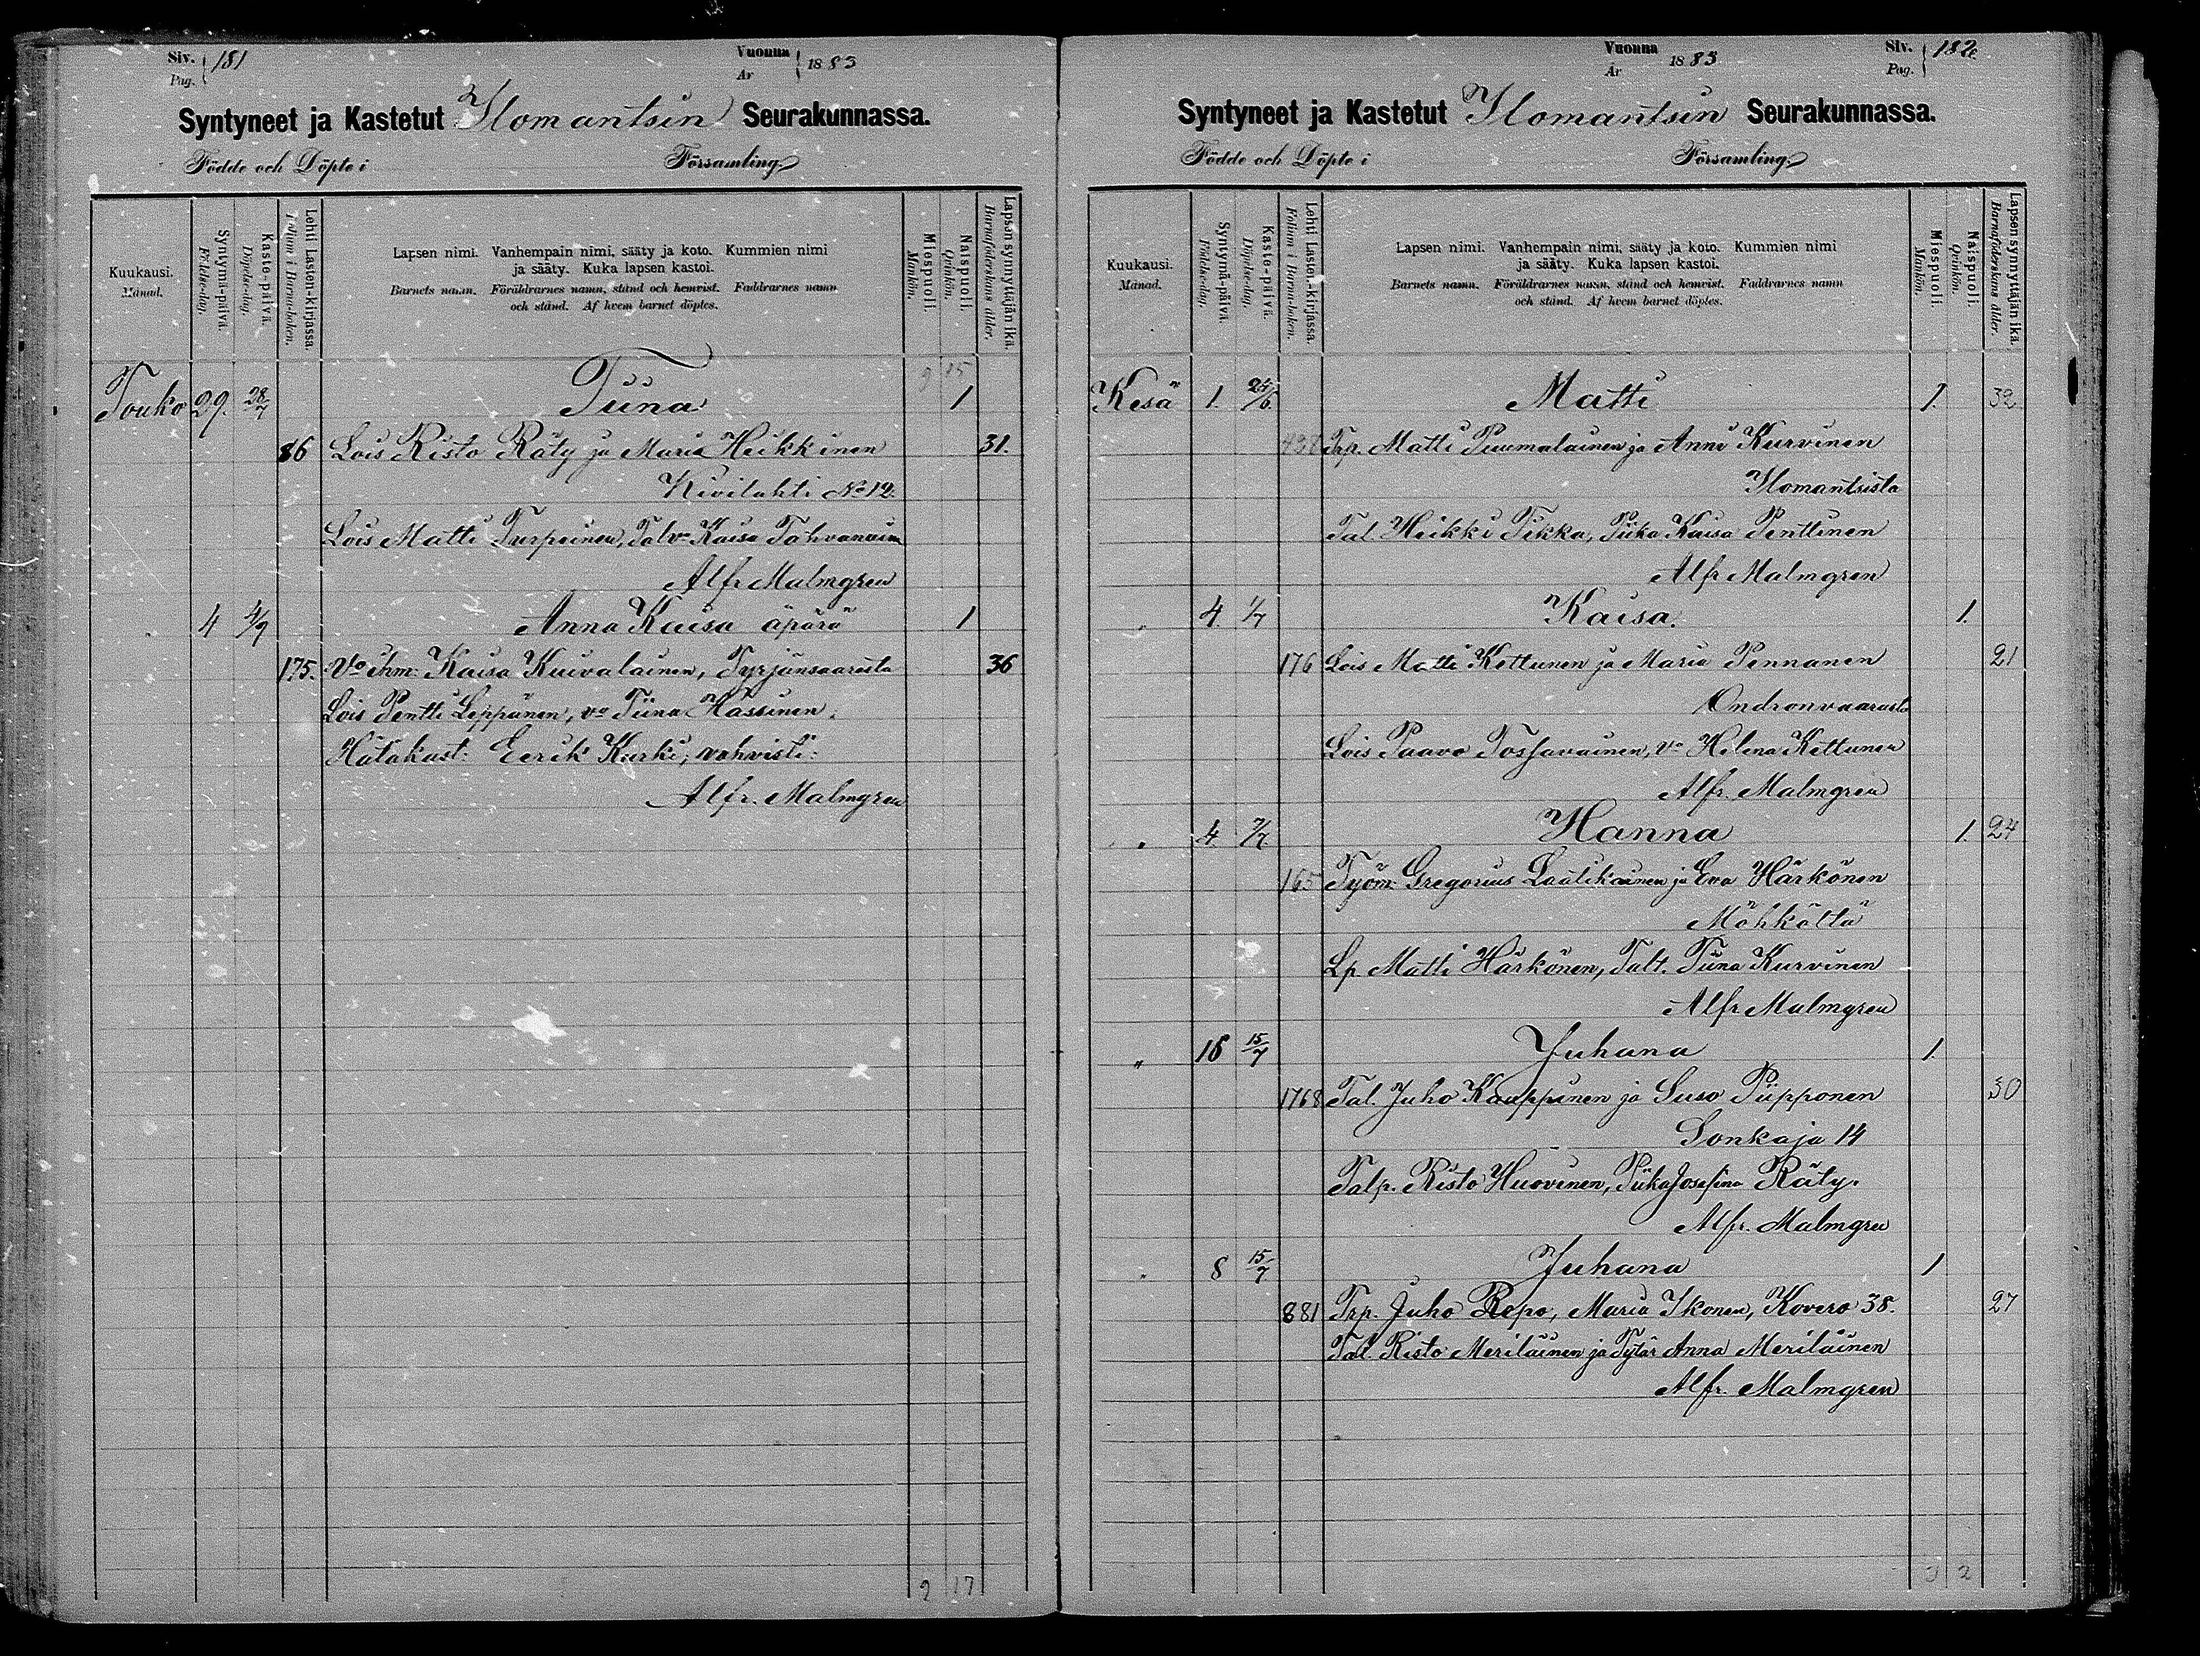 Siv. Pag. 181
Vuonna År 1883
Syntyneet ja Kastetut Ilomantsin Seurakunnassa.
Födde och Döpte i Församling.
Kuukausi. Månad.
Syntymä-päivä. Födelse-dag.
Kaste-päivä. Döpelse-dag.
Lehti Lasten-kirjassa. Folium i Barna-boken.
Lapsen nimi. Vanhempain nimi, sääty ja koto. Kummien nimi
ja sääty. Kuka lapsen kastoi.
Barnets namn. Föräldrarnes namn, stånd och hemvist. Faddrarnes namn
och stånd. Af hvem barnet döptes.
Miespuoli. Mankön.
Naispuoli. Qvinkön.
Lapsen synnyttäjän ikä. Barnaföderskans ålder.
9 15
Touko 29. 28/7 Tiina 1
86 Lois Risto Räty ja Maria Heikkinen 31.
Kivilahti No 12.
Lois Matti Turpeinen, Talv. Kaisa Tahvanainen
Alfr Malmgren
" 4 4/9 Anna Kaisa äpärä 1
175. Vo ihm. Kaisa Kuivalainen, Tyrjänsaaresta 36
Lois Pentti Leppänen, vo Tiina Hassinen.
Hätäkast: Eerik Kurki; vahvisti:
Alfr. Malmgren
9 17
Vuonna År 1883
Siv. Pag. 182
Syntyneet ja Kastetut Ilomantsin Seurakunnassa.
Födde och Döpte i Församling.
Kuukausi. Månad.
Syntymä-päivä. Födelse-dag.
Kaste-päivä. Döpelse-dag.
Lehti Lasten-kirjassa. Folium i Barna-boken.
Lapsen nimi. Vanhempain nimi, sääty ja koto. Kummien nimi
ja sääty. Kuka lapsen kastoi.
Barnets namn. Föräldrarnes namn, stånd och hemvist. Faddrarnes namn
och stånd. Af hvem barnet döptes.
Miespuoli. Mankön.
Naispuoli. Qvinkön.
Lapsen synnyttäjän ikä. Barnaföderskans ålder.
Kesä 1. 24/6. Matti 1. 32
Trp. Matti Puumalainen ja Anni Kurvinen
Ilomantsista
Tal. Heikki Tikka, Piika Kaisa Penttinen
Alfr Malmgren
" 4. 1/7 Kaisa. 1.
176 Lois Matti Kettunen ja Maria Pennanen 21
Ondronvaarasta
Lois Paavo Tossavainen, vo Helena Kettunen
Alfr. Malmgren
" 4. 7/7. Hanna 1. 24
165 Työm. Gregorius Laatikainen ja Eva Härkönen
Möhköltä
Lp. Matti Härkönen, Talt. Tiina Kurvinen
Alfr Malmgren
" 15/7 Juhana 1.
1768 Tal. Juho Kauppinen ja Suso Piipponen 30
Sonkaja 14
Talp. Risto Huovinen, Piika Josefina Räty.
Alfr. Malmgren
" 8 15/7 Juhana 1
881 Trp. Juho Repo, Maria Ikonen, Kovero 38. 27
Tal. Risto Meriläinen ja Tytär Anna Meriläinen
Alfr. Malmgren
3 2